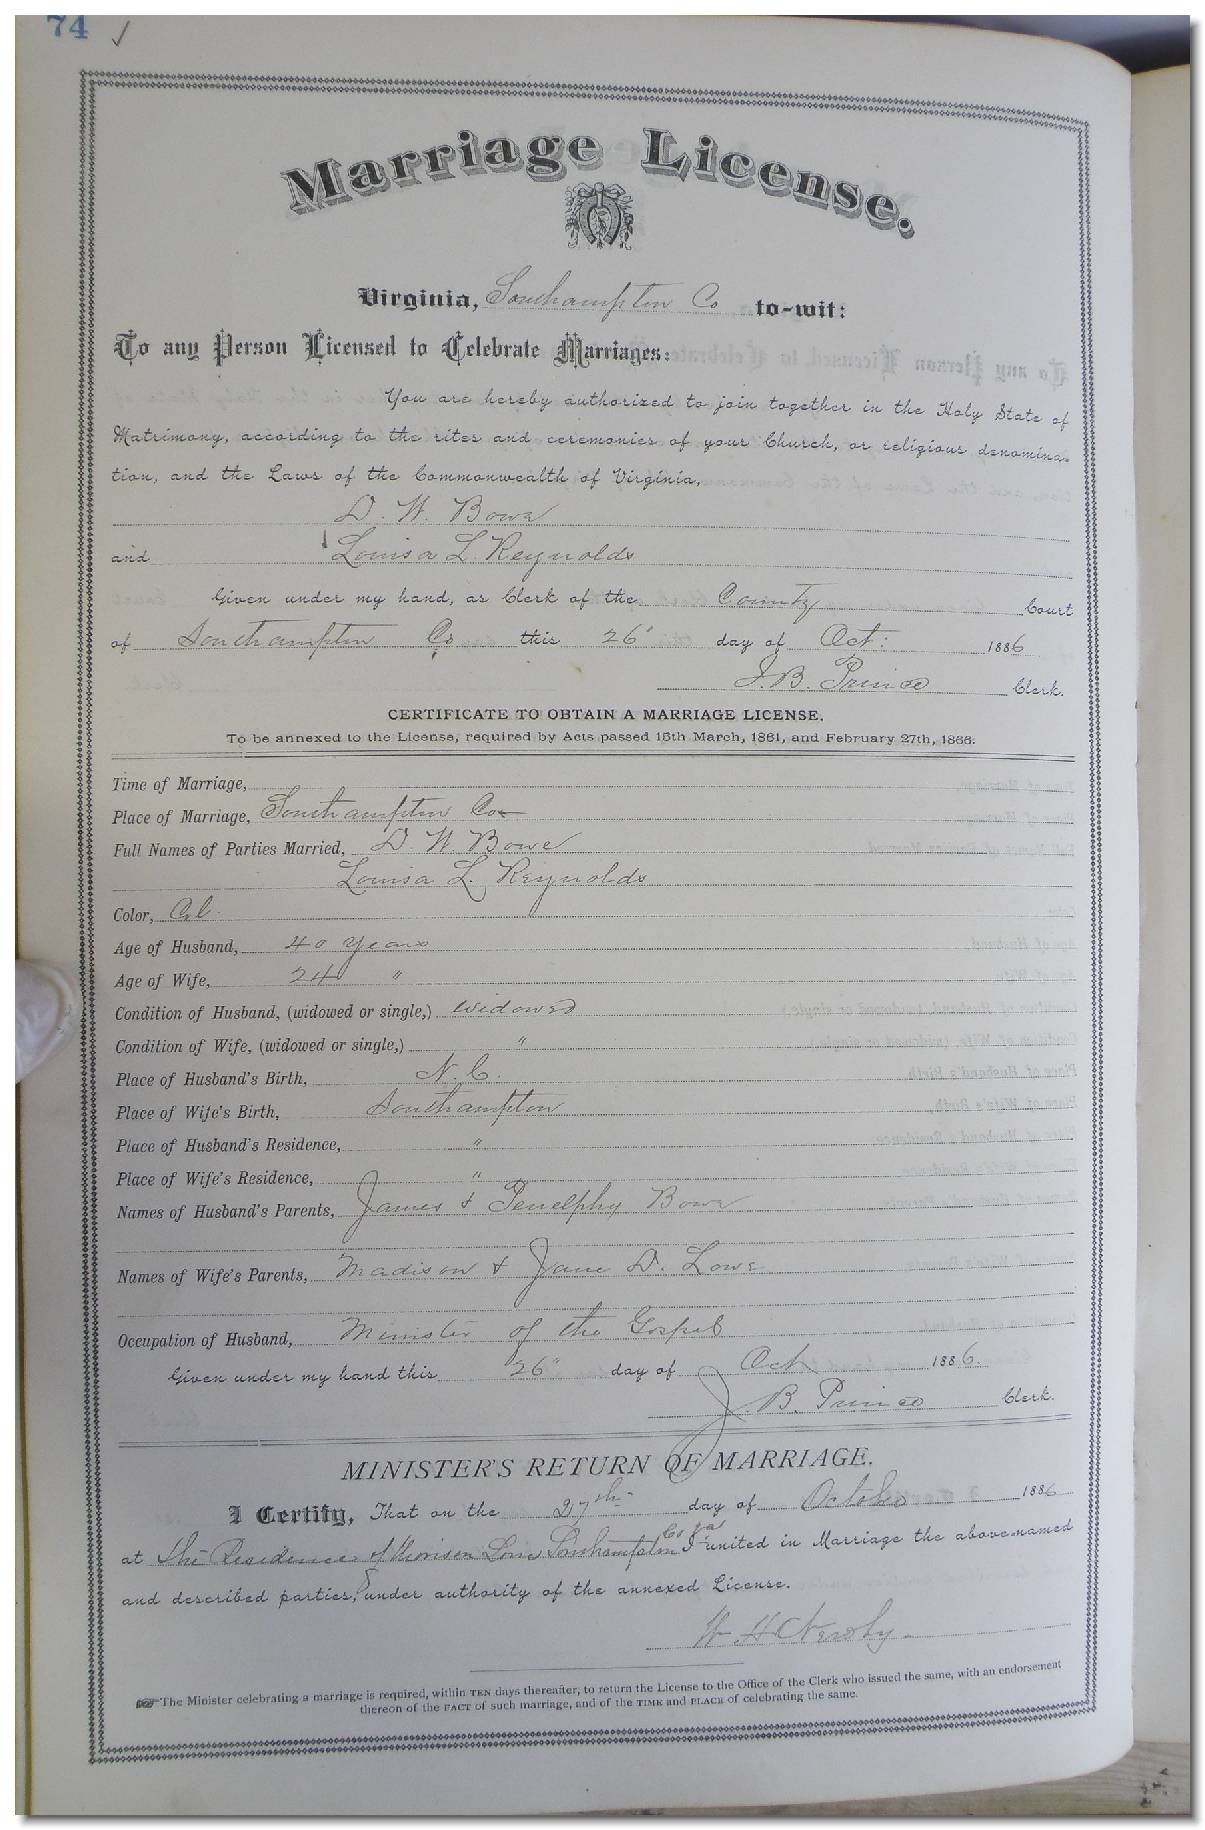 74 ✓
Marriage License.
Virginia, Southampton Co to-wit:
To any Person Licensed to Celebrate Marriages:
You are hereby authorized to join together in the Holy State of
Matrimony, according to the rites and ceremonies of your Church, or religious denomina-
tion, and the Laws of the Commonwealth of Virginia,
D. W. Bowe
and Louisa L. Reynolds
Given under my hand, as Clerk of the County Court
of Southampton Co this 26" day of Oct: 1886
J. B. Prince Clerk.
CERTIFICATE TO OBTAIN A MARRIAGE LICENSE.
To be annexed to the License, required by Acts passed 15th March, 1861, and February 27th, 1866:
Time of Marriage,
Place of Marriage, Southampton Co
Full Names of Parties Married, D W Bowe
Louisa L. Reynolds
Color, Col
Age of Husband, 40 years
Age of Wife, 24 "
Condition of Husband, (widowed or single,) widowed
Condition of Wife, (widowed or single,) "
Place of Husband's Birth, N. C.
Place of Wife's Birth, Southampton
Place of Husband's Residence, "
Place of Wife's Residence, "
Names of Husband's Parents, James & Penelphy Bowe
Names of Wife's Parents, Madison & Jane D. Lowe
Occupation of Husband, Minister of the Gospel
Given under my hand this 26" day of Oct 1886.
J. B. Prince Clerk.
MINISTER'S RETURN OF MARRIAGE.
I Certify, That on the 27th day of October 1886
at the Residence of Southampton Co Va I united in Marriage the above-named
and described parties, under authority of the annexed License.
W H
The Minister celebrating a marriage is required, within TEN days thereafter, to return the License to the Office of the Clerk who issued the same, with an endorsement
thereon of the FACT of such marriage, and of the TIME and PLACE of celebrating the same.